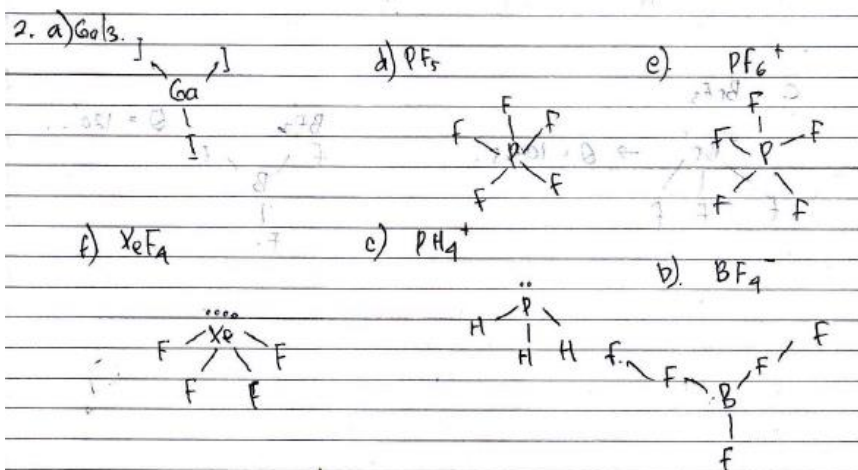 2. a) GaI3.
I I
Ga
I
d) PF5
F
F F
P
F F
e). PF6+
F
F F
P
F F
f) XeF4
Xe
F F
F F
c) PH4+
P
H H H
b). BF4-
F F
F F
B
F